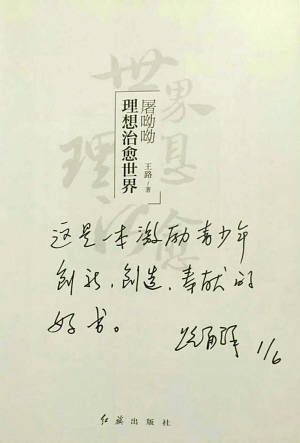 屠呦呦
理想治愈世界
王路 / 著
这是一本激励青少年
创新、创造、奉献的
好书。
1/6
红旗出版社